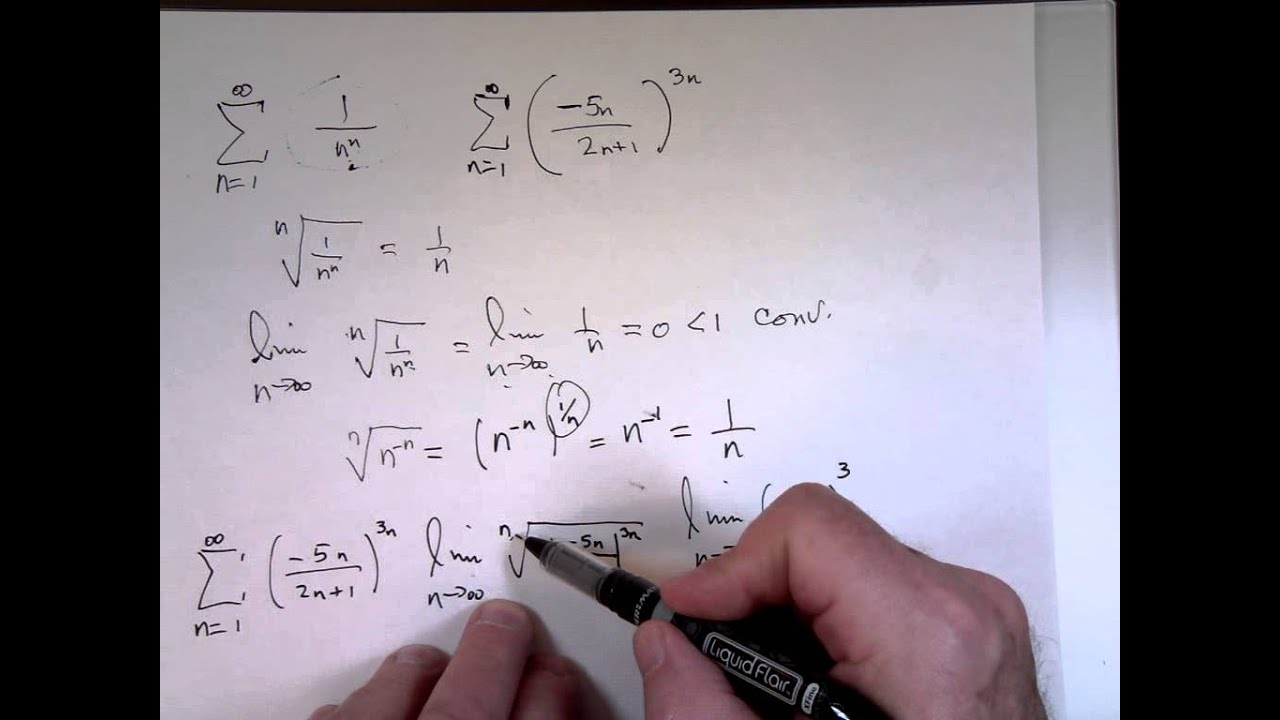 ∞ ∑ n=1 1/nⁿ ∞ ∑ n=1 (-5n/2n+1)³ⁿ
ⁿ√(1/nⁿ) = 1/n
lim n→∞ ⁿ√(1/nⁿ) = lim n→∞ 1/n = 0 < 1 conv.
ⁿ√(n⁻ⁿ) = (n⁻ⁿ)^(1/n) = n⁻¹ = 1/n
∞ ∑ n=1 (-5n/2n+1)³ⁿ lim n→∞ ⁿ√ -5n |³ⁿ lim n→ ( )³
LiquidFlair